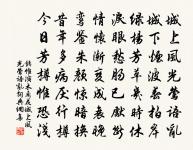 城上風光鶯語亂
城下煙波春拍岸
綠楊芳草幾時休
淚眼愁腸先已斷
情懷漸變成衰晚
鸞鏡朱顏驚暗換
昔年多病厭芳樽
今日芳樽惟恐淺
錢惟演木蘭花城上風
光鶯語亂句典網集